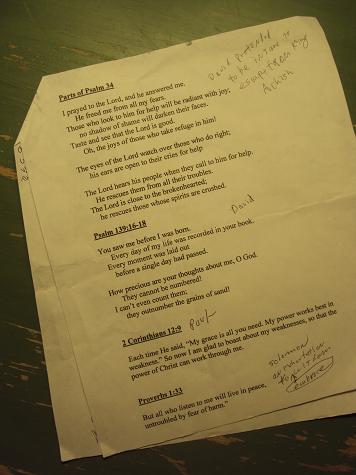 Parts of Psalm 34
David pretended
to be insane to
escape from King
Achish
I prayed to the Lord, and he answered me.
He freed me from all my fears.
Those who look to him for help will be radiant with joy;
no shadow of shame will darken their faces.
Taste and see that the Lord is good.
Oh, the joys of those who take refuge in him!
The eyes of the Lord watch over those who do right;
his ears are open to their cries for help
The Lord hears his people when they call to him for help.
He rescues them from all their troubles.
The Lord is close to the brokenhearted;
he rescues those whose spirits are crushed.
Psalm 139:16-18
David
You saw me before I was born.
Every day of my life was recorded in your book.
Every moment was laid out
before a single day had passed.
How precious are your thoughts about me, O God.
They cannot be numbered!
I can't even count them;
they outnumber the grains of sand!
2 Corinthians 12:9
Paul
Each time He said, "My grace is all you need. My power works best in
weakness." So now I am glad to boast about my weaknesses, so that the
power of Christ can work through me.
Solomon
Proverbs 1:33
But all who listen to me will live in peace,
untroubled by fear of harm."